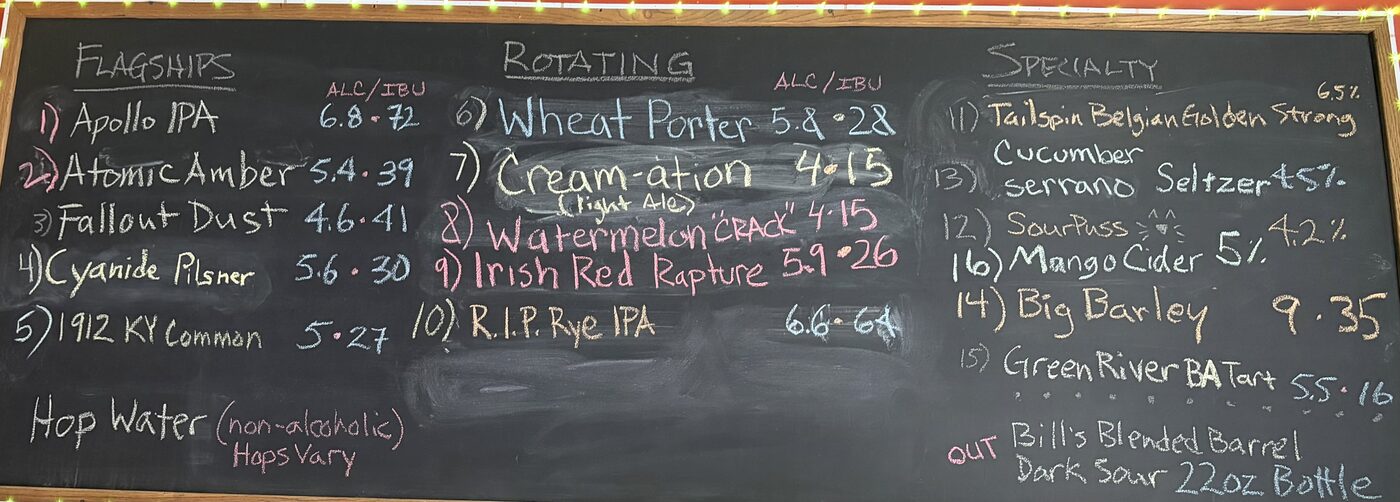 FLAGSHIPS
ALC/IBU
1) Apollo IPA 6.8•72
2) Atomic Amber 5.4•39
3) Fallout Dust 4.6•41
4) Cyanide Pilsner 5.6•30
5) 1912 KY Common 5•27
Hop Water (non-alcoholic)
Hops Vary
ROTATING
ALC/IBU
6) Wheat Porter 5.8•28
7) Cream-ation 4•15
(light Ale)
8) Watermelon "CRACK" 4•15
9) Irish Red Rapture 5.9•26
10) R.I.P. Rye IPA 6.6•64
SPECIALTY
6.5%
11) Tailspin Belgian Golden Strong
Cucumber
13) serrano Seltzer 4.5%
12) SourPuss 4.2%
16) Mango Cider 5%
14) Big Barley 9•35
15) Green River BA Tart 5.5•16
OUT Bill's Blended Barrel
Dark Sour 22oz Bottle